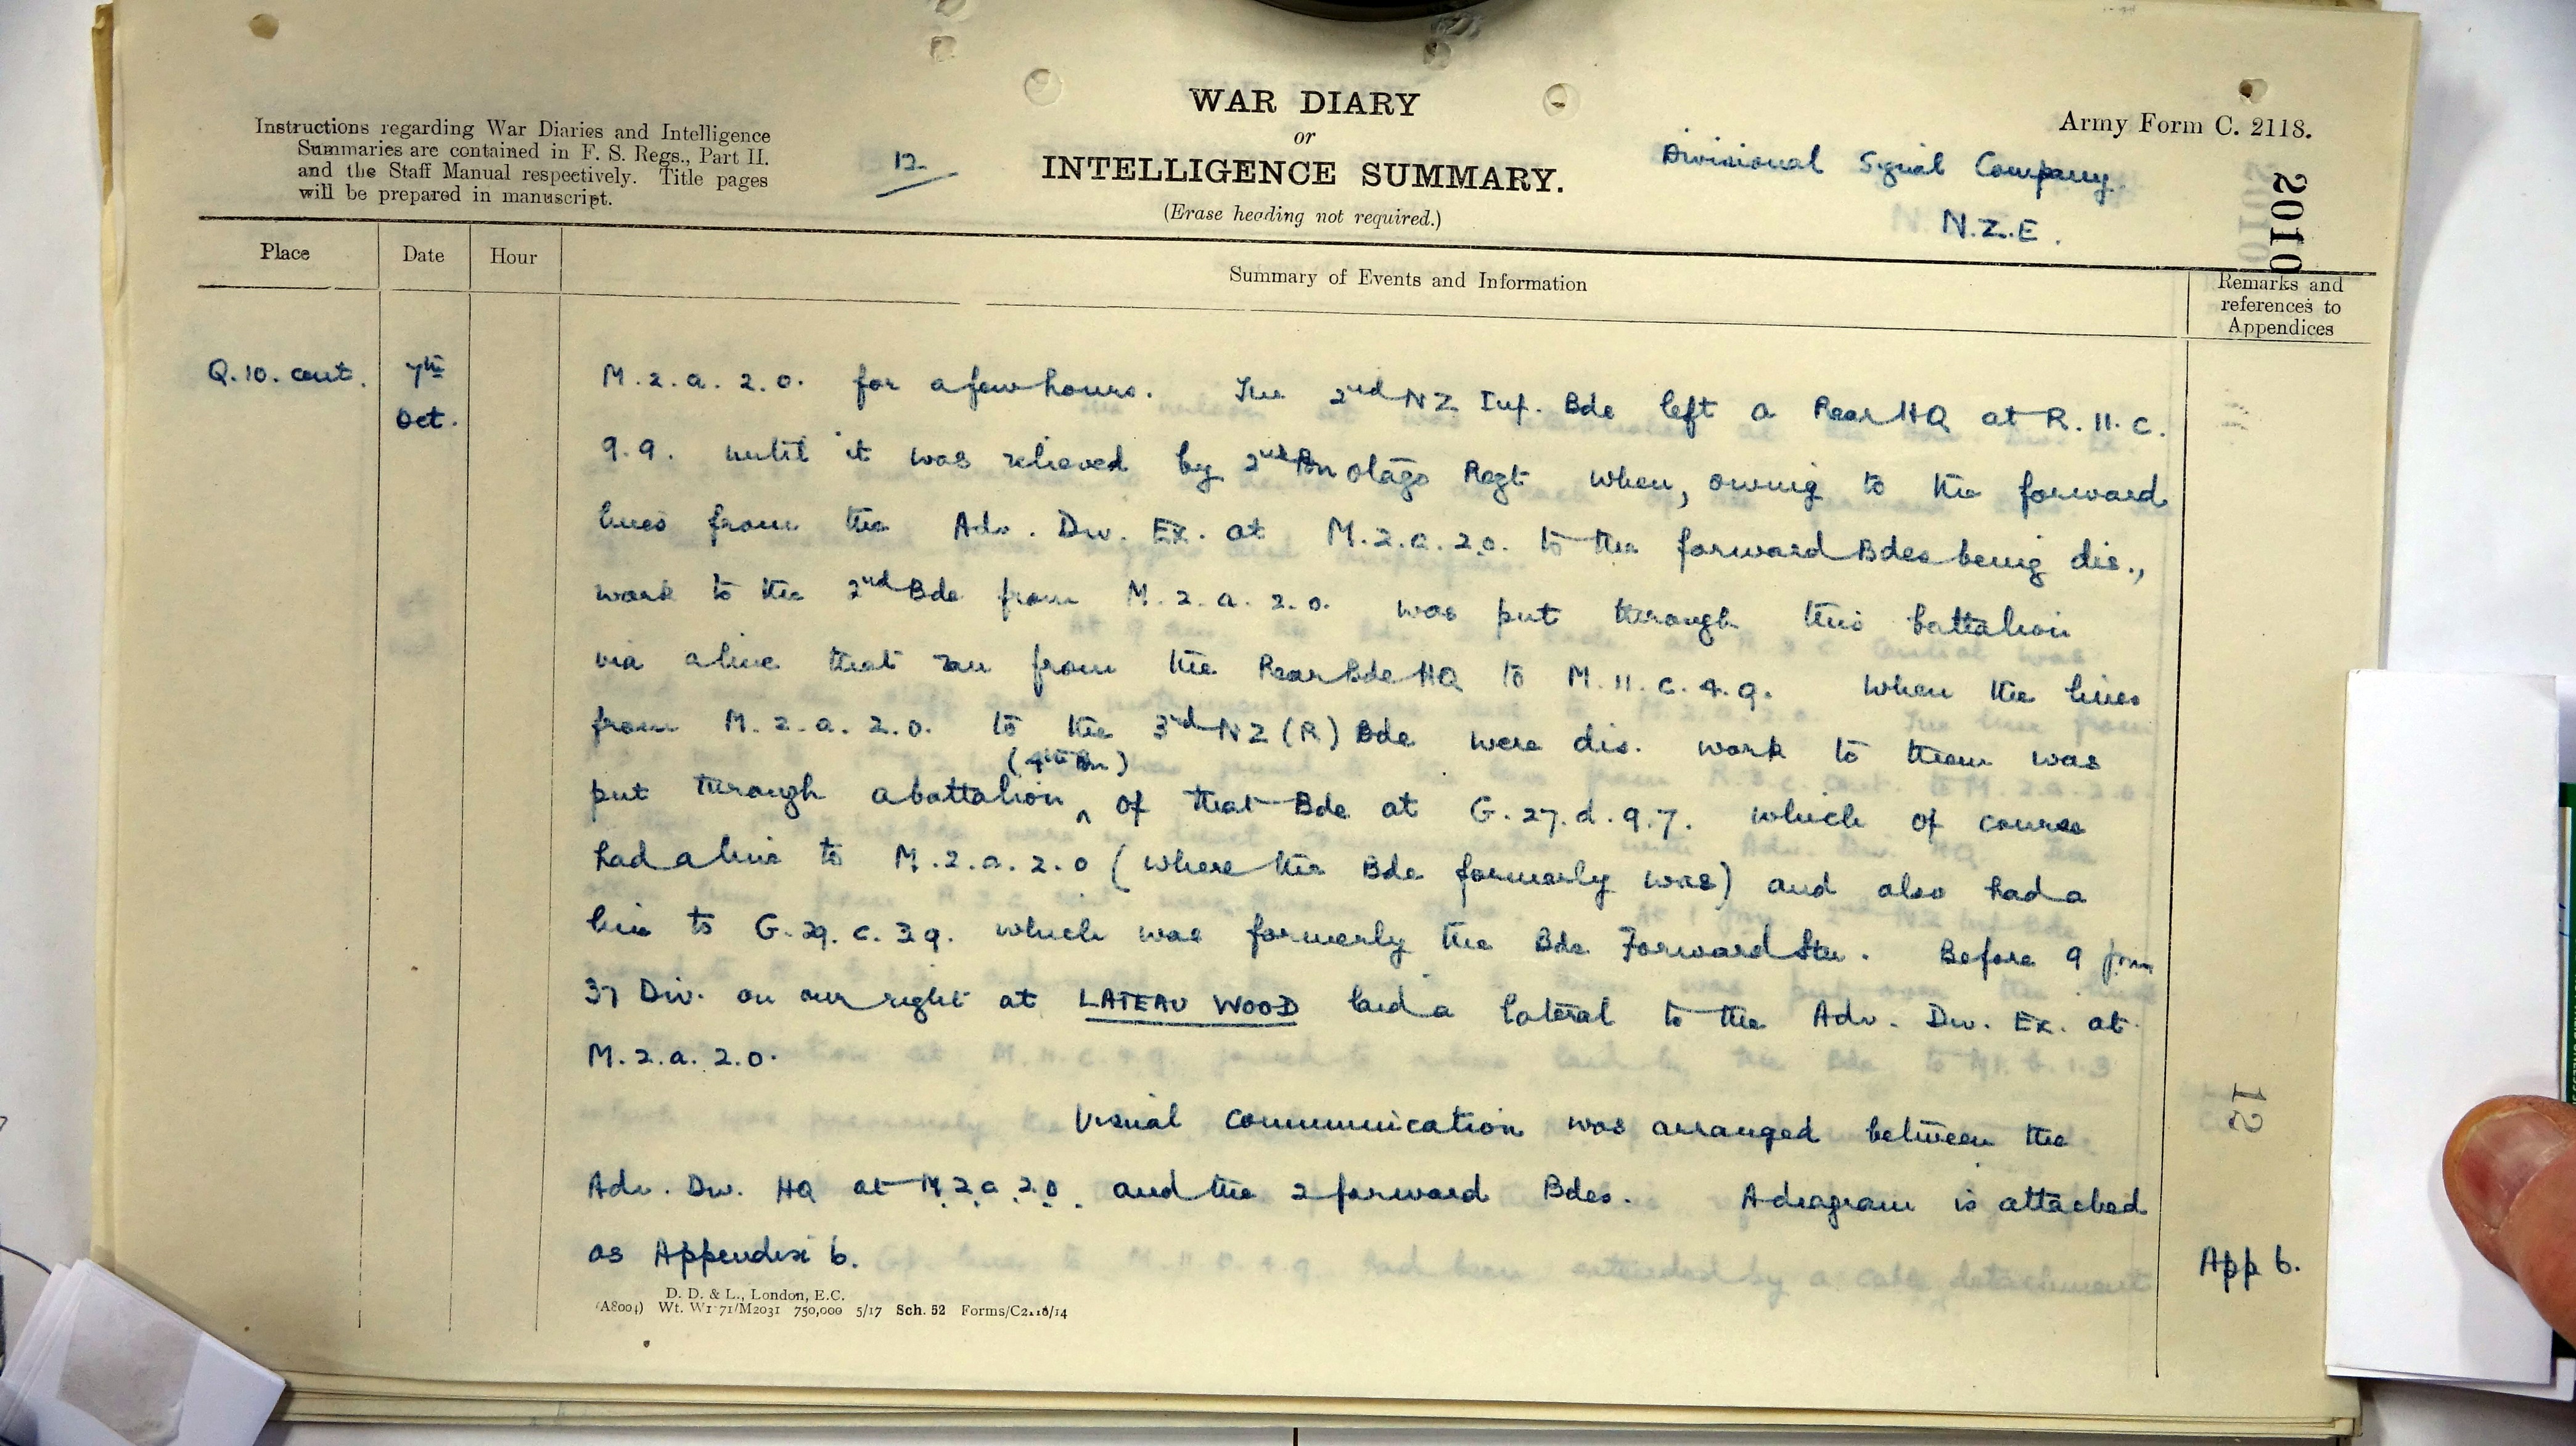 WAR DIARY
or
INTELLIGENCE SUMMARY.
(Erase heading not required.)
Instructions regarding War Diaries and Intelligence
Summaries are contained in F. S. Regs., Part II.
and the Staff Manual respectively. Title pages
will be prepared in manuscript.
12.
Army Form C. 2118.
Divisional Signal Company.
N.Z.E.
2010
Place
Date
Hour
Summary of Events and Information
Remarks and
references to
Appendices
Q.10. cent.
7th
Oct.
M.2.a.2.0. for a few hours. The 2nd NZ Inf. Bde left a Rear HQ at R.11.c.
9.9. until it was relieved by 2nd Bn Otago Regt when, owing to the forward
lines from the Adv. Div. Ex. at M.2.a.2.0. to the forward Bdes being dis.,
work to the 2nd Bde from M.2.a.2.0. was put through this battalion
via a line that ran from the Rear Bde HQ to M.11.c.4.9. When the lines
from M.2.a.2.0. to the 3rd NZ (R) Bde were dis. work to them was
(4th Bn)
put through a battalion ^ of that Bde at G.27.d.9.7. which of course
had a line to M.2.a.2.0 (where the Bde formerly was) and also had a
line to G.29.c.3.9. which was formerly the Bde Forward Stn. Before 9 pm
37 Div. on our right at LATEAU WOOD laid a lateral to the Adv. Div. Ex. at
M.2.a.2.0.
Visual communication was arranged between the
Adv. Div. HQ at M.2.a.2.0. and the 2 forward Bdes. A diagram is attached
as Appendix 6.
App 6.
12
D. D. & L., London, E.C.
(A8004) Wt. W1771/M2031 750,000 5/17 Sch. 52 Forms/C2118/14